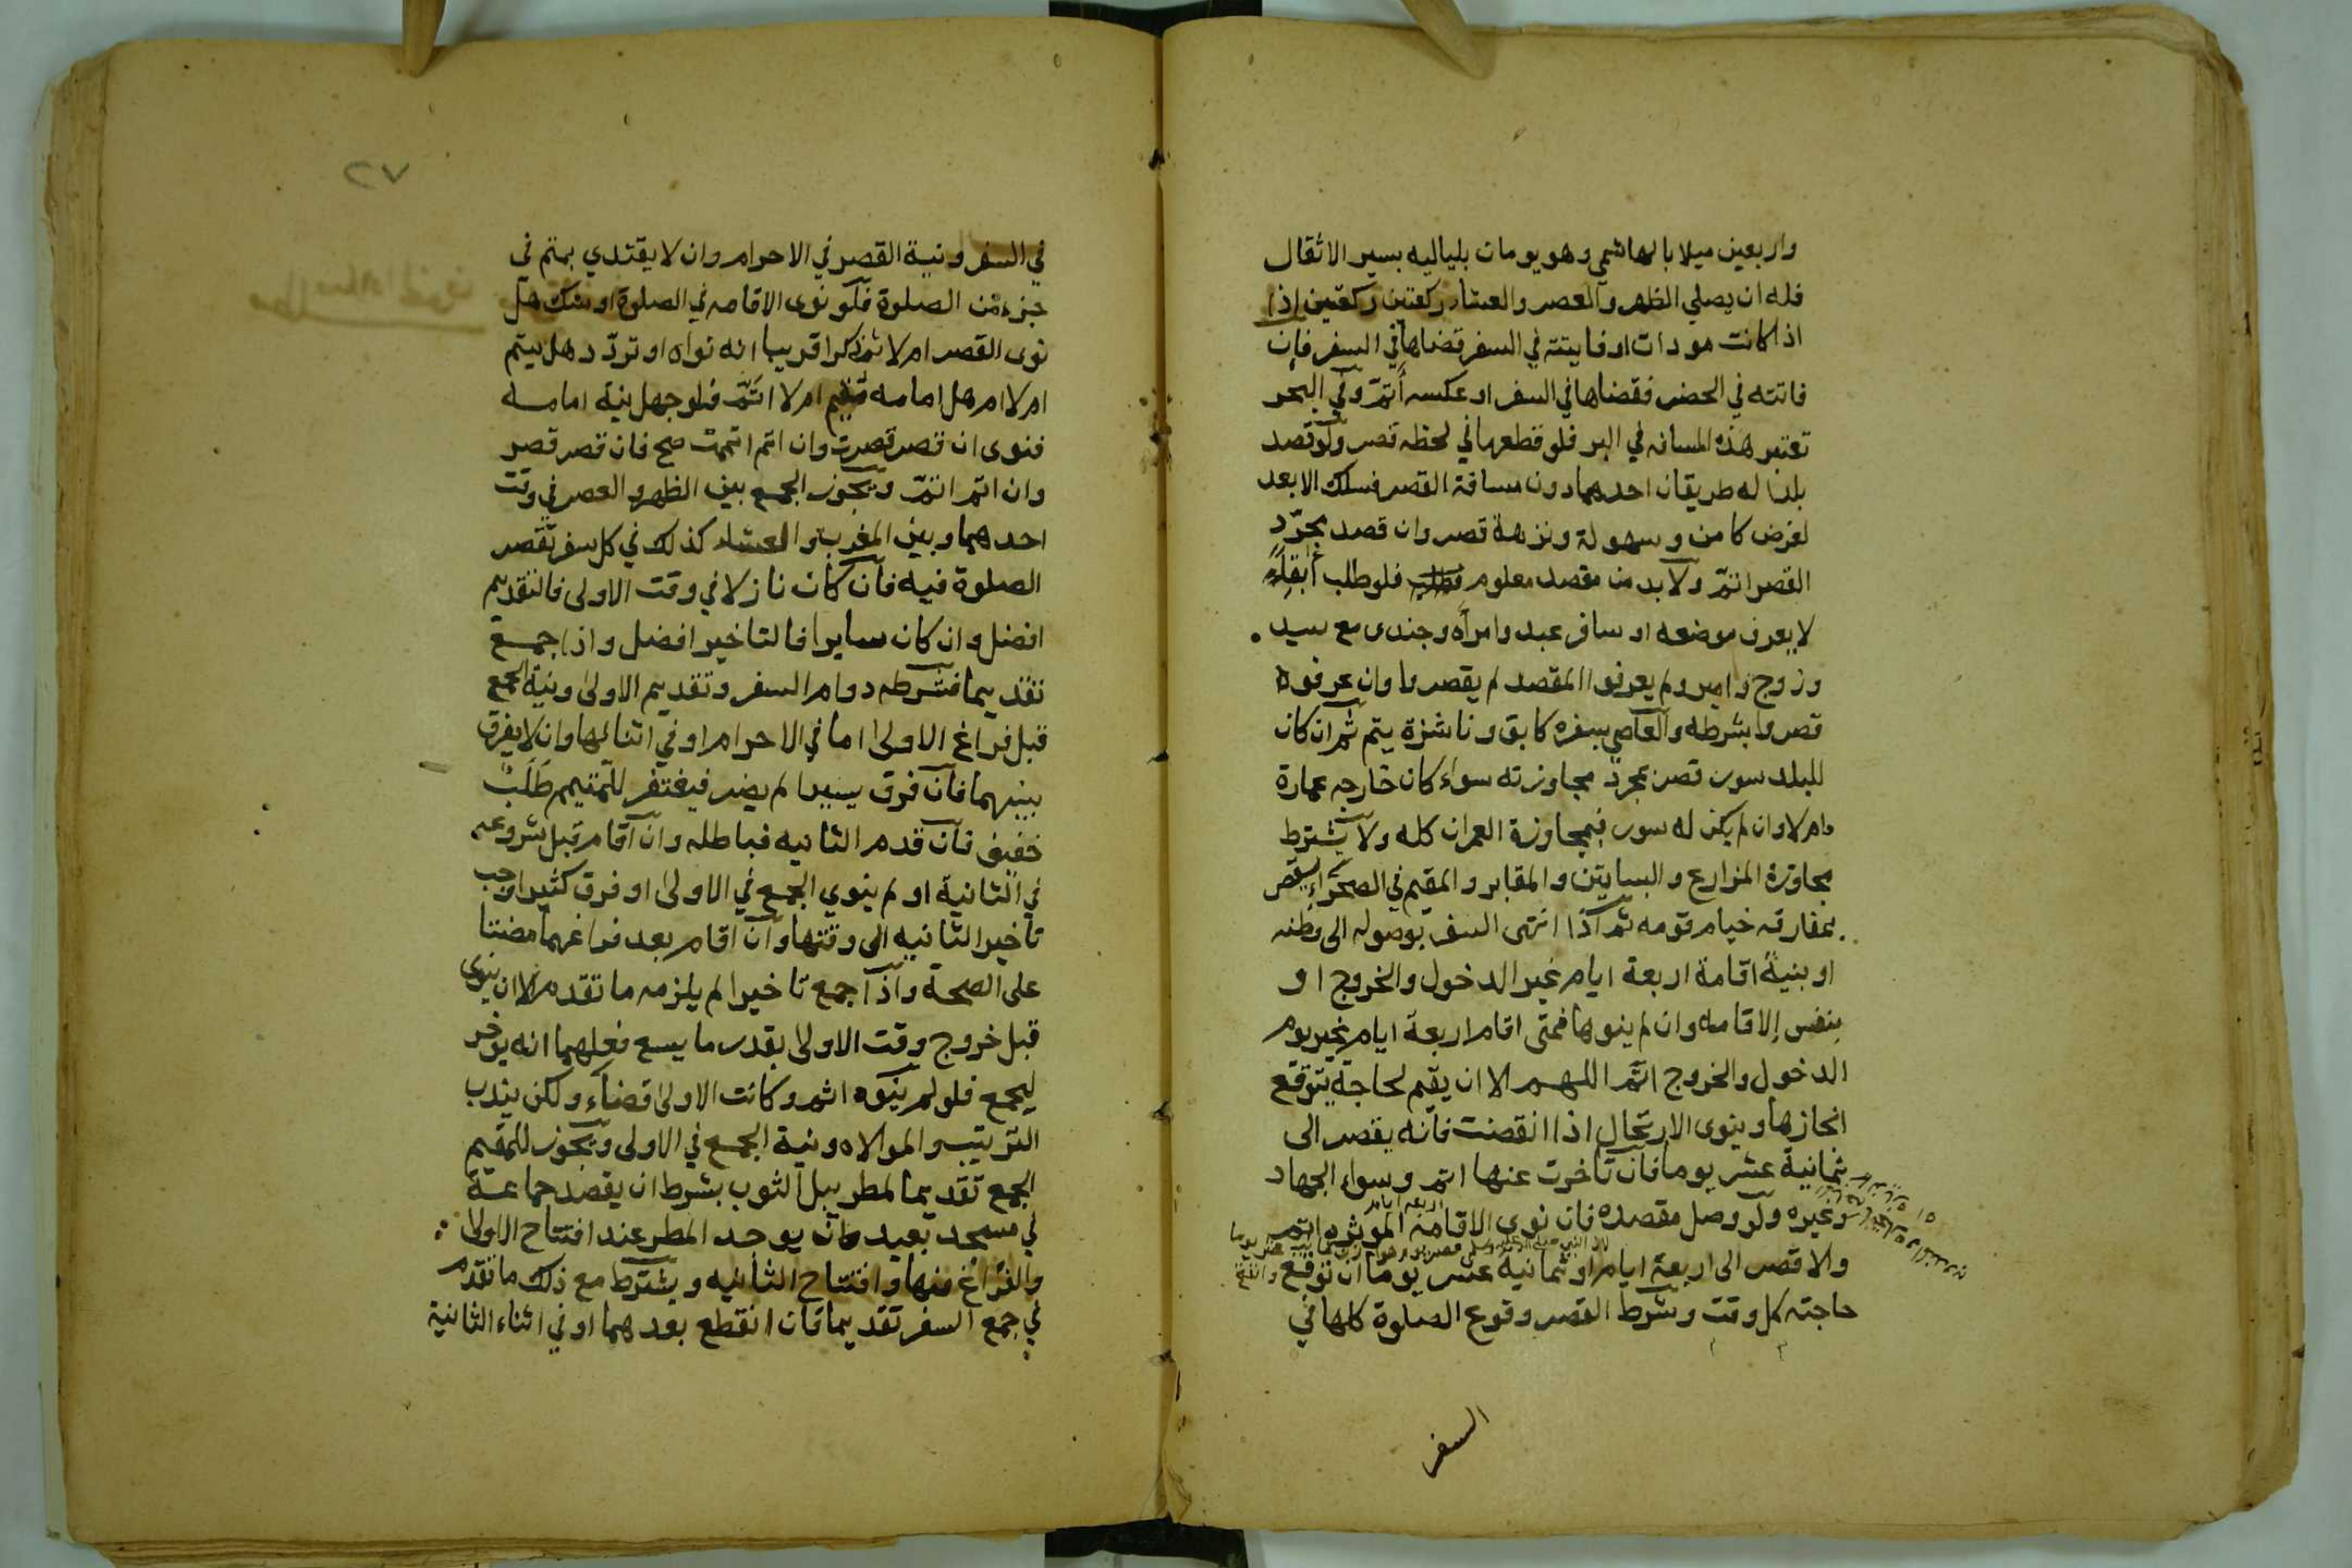 واربعين ميلا بالهاشمي وهو يومان بلياليه بسير الاثقال
فله ان يصلي الظهر والعصر والعشاء ركعتين ركعتين اذا
اذا كانت مودات او فايتته في السفر قضاها في السفر فان
فاتته في الحضر فقضاها في السفر او عكسه أتمّ وفي البحر
تعتبر هذه المسافه في البر فلو قطعها في لحظه قصر ولو قصد
بلدا له طريقان احدهما دون مسافة القصر فسلك الابعد
لغرض كامن وسهولة ونزهة قصر وان قصد بمجرّد
القصر اتمّ ولا بد من مقصد معلوم فلو طلب آبقاً
لا يعرف موضعه او سافر عبد وامرأه وجندى مع سيد
وزوج وامير ولم يعرفوا المقصد لم يقصروا وان عرفوه
قصروا بشرطه والعاصي بسفره كابق وناشزة يتم ثم ان كان
للبلد سور قصر بمجرد مجاوزته سواء كان خارجه عمارة
ام لا وان لم يكن له سور فبمجاوزة العمران كله ولا يشترط
مجاوزة المزارع والبساتين والمقابر والمقيم في الصحراء يقصر
بمفارقه خيام قومه ثم اذا انتهى السفر بوصوله الى وطنه
او بنية اقامة اربعة ايام غير الدخول والخروج او
بنفس الاقامه وان لم ينوها فمتى اقام اربعة ايام غير يوم
الدخول والخروج اتمّ اللهم الا ان يقيم لحاجة يتوقع
انجازها وينوى الارتحال اذا انقضت فانه يقصر الى
ثمانية عشر يوما فان تاخرت عنها اتم وسواء الجهاد
اربعه ايام
وغيره ولو وصل مقصده فان نوى الاقامة الموثره اتم
والا قصر الى اربعة ايام او ثمانية عشر يوما ان توقع
حاجته كل وقت وشرط القصر وقوع الصلوة كلها في
السفر
٧٢
في السفر ونية القصر في الاحرام وان لا يقتدي بمتم في
جزء من الصلوة فلو نوى الاقامه في الصلوة او شك هل
نوى القصر ام لا ثم ذكر قريبا انه نواه او تردّد هل يتم
ام لا ام هل امامه مقيم ام لا اتمّ فلو جهل نية امامه
فنوى ان قصر قصرت وان اتم اتممت صح فان قصر قصر
وان اتم اتمّ ويجوز الجمع بين الظهر والعصر في وقت
احدهما وبين المغرب والعشاء كذلك في كل سفر تقصر
الصلوة فيه فان كان نازلا في وقت الاولى فالتقديم
افضل وان كان سايرا فالتاخير افضل واذا جمع
تقديما فشرطه دوام السفر وتقديم الاولى ونية الجمع
قبل فراغ الاولى اما في الاحرام او في اثنائها وان لا يفرق
بينهما فان فرق يسيرا لم يضر فيغتفر للمتيمم طَلَبٌ
خفيف فان قدم الثانيه فباطله وان اقام قبل شروعه
في الثانية او لم ينوي الجمع في الاولى او فرق كثيرا وجب
تاخير الثانيه الى وقتها وان اقام بعد فراغهما مضتا
على الصحة واذا جمع تاخيرا لم يلزمه ما تقدم الا ان ينوى
قبل خروج وقت الاولى بقدر ما يسع فعلهما انه يوخر
ليجمع فلو لم ينوه اثم وكانت الاولى قضاء ولكن يندب
الترتيب والموالاه ونية الجمع في الاولى ويجوز للمقيم
الجمع تقديما لمطر يبل الثوب بشرط ان يقصد جماعة
في مسجد بعيد وان يوجد المطر عند افتتاح الاولا
والفراغ منها وافتتاح الثانيه ويشترط مع ذلك ما تقدم
في جمع السفر تقديما فان انقطع بعدهما او في اثناء الثانية